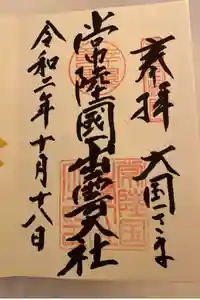 奉拝
大国さま
常陸國出雲大社
令和二年十月十八日